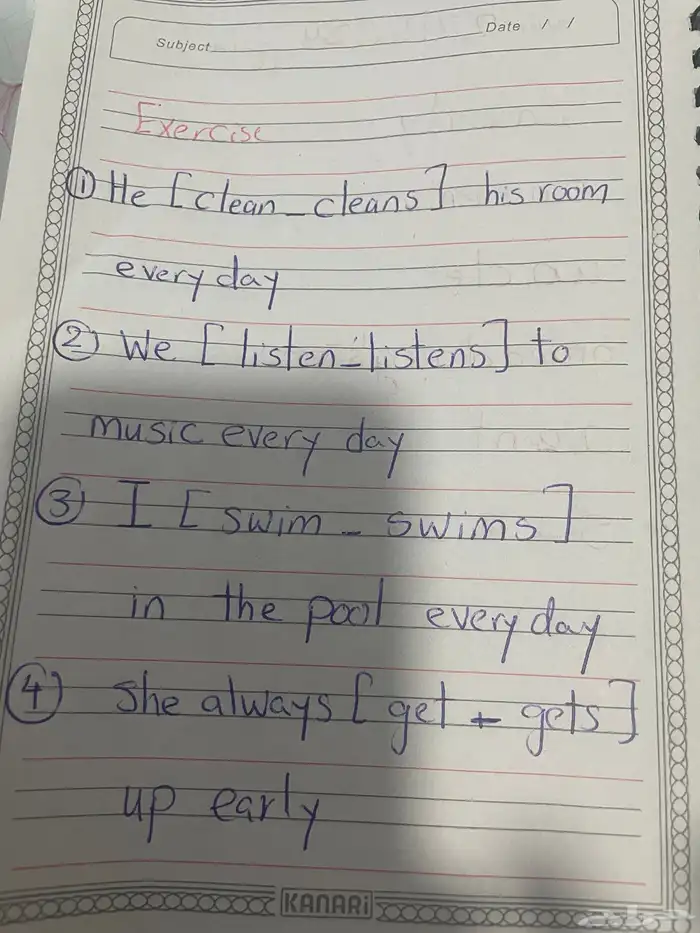 Date / /
Subject
Exercise
① He [clean_cleans] his room
every day
② We [listen_listens] to
music every day
③ I [swim_swims]
in the pool every day
④ She always [get_gets]
up early
KANARi